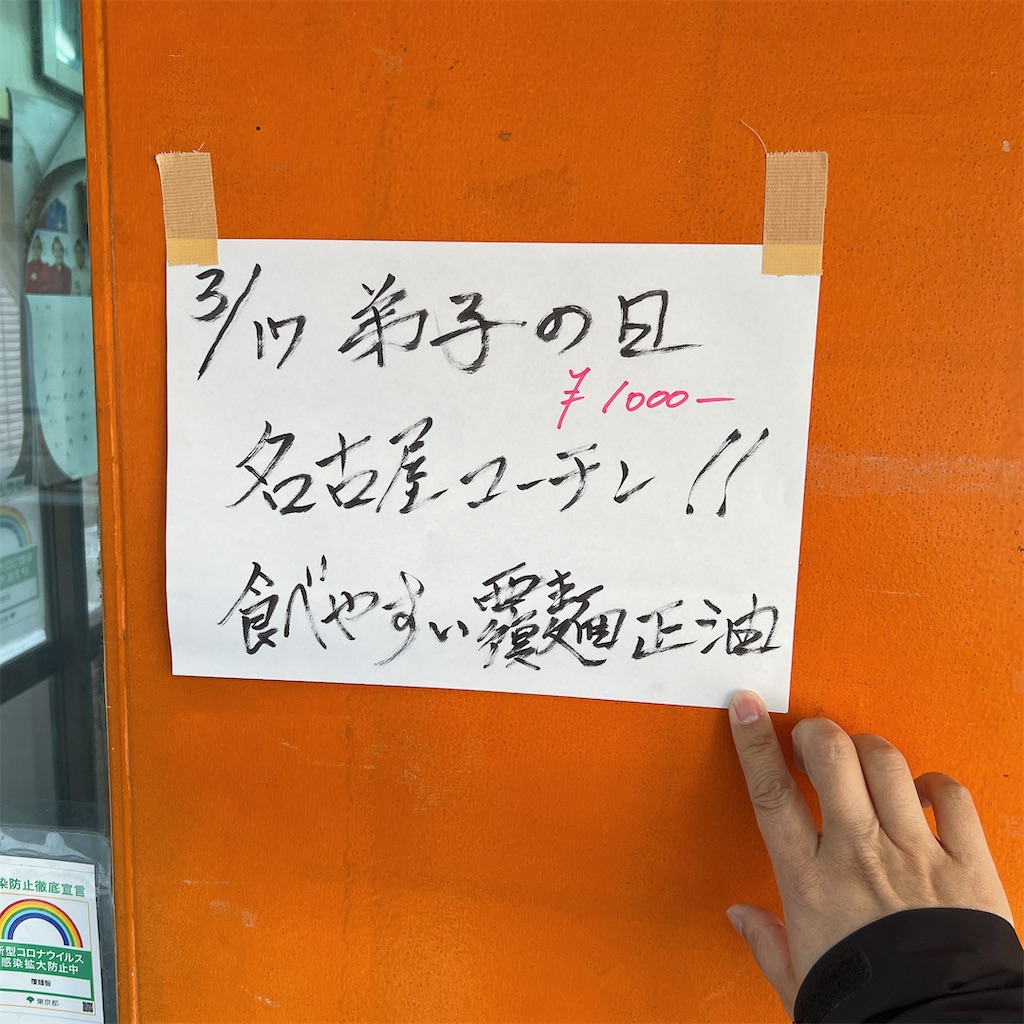 3/17 弟子の日
¥1000-
名古屋コーチン!!
食べやすい覆麺正油
染防止徹底宣言
新型コロナウイルス
感染拡大防止中
覆麺智
東京都